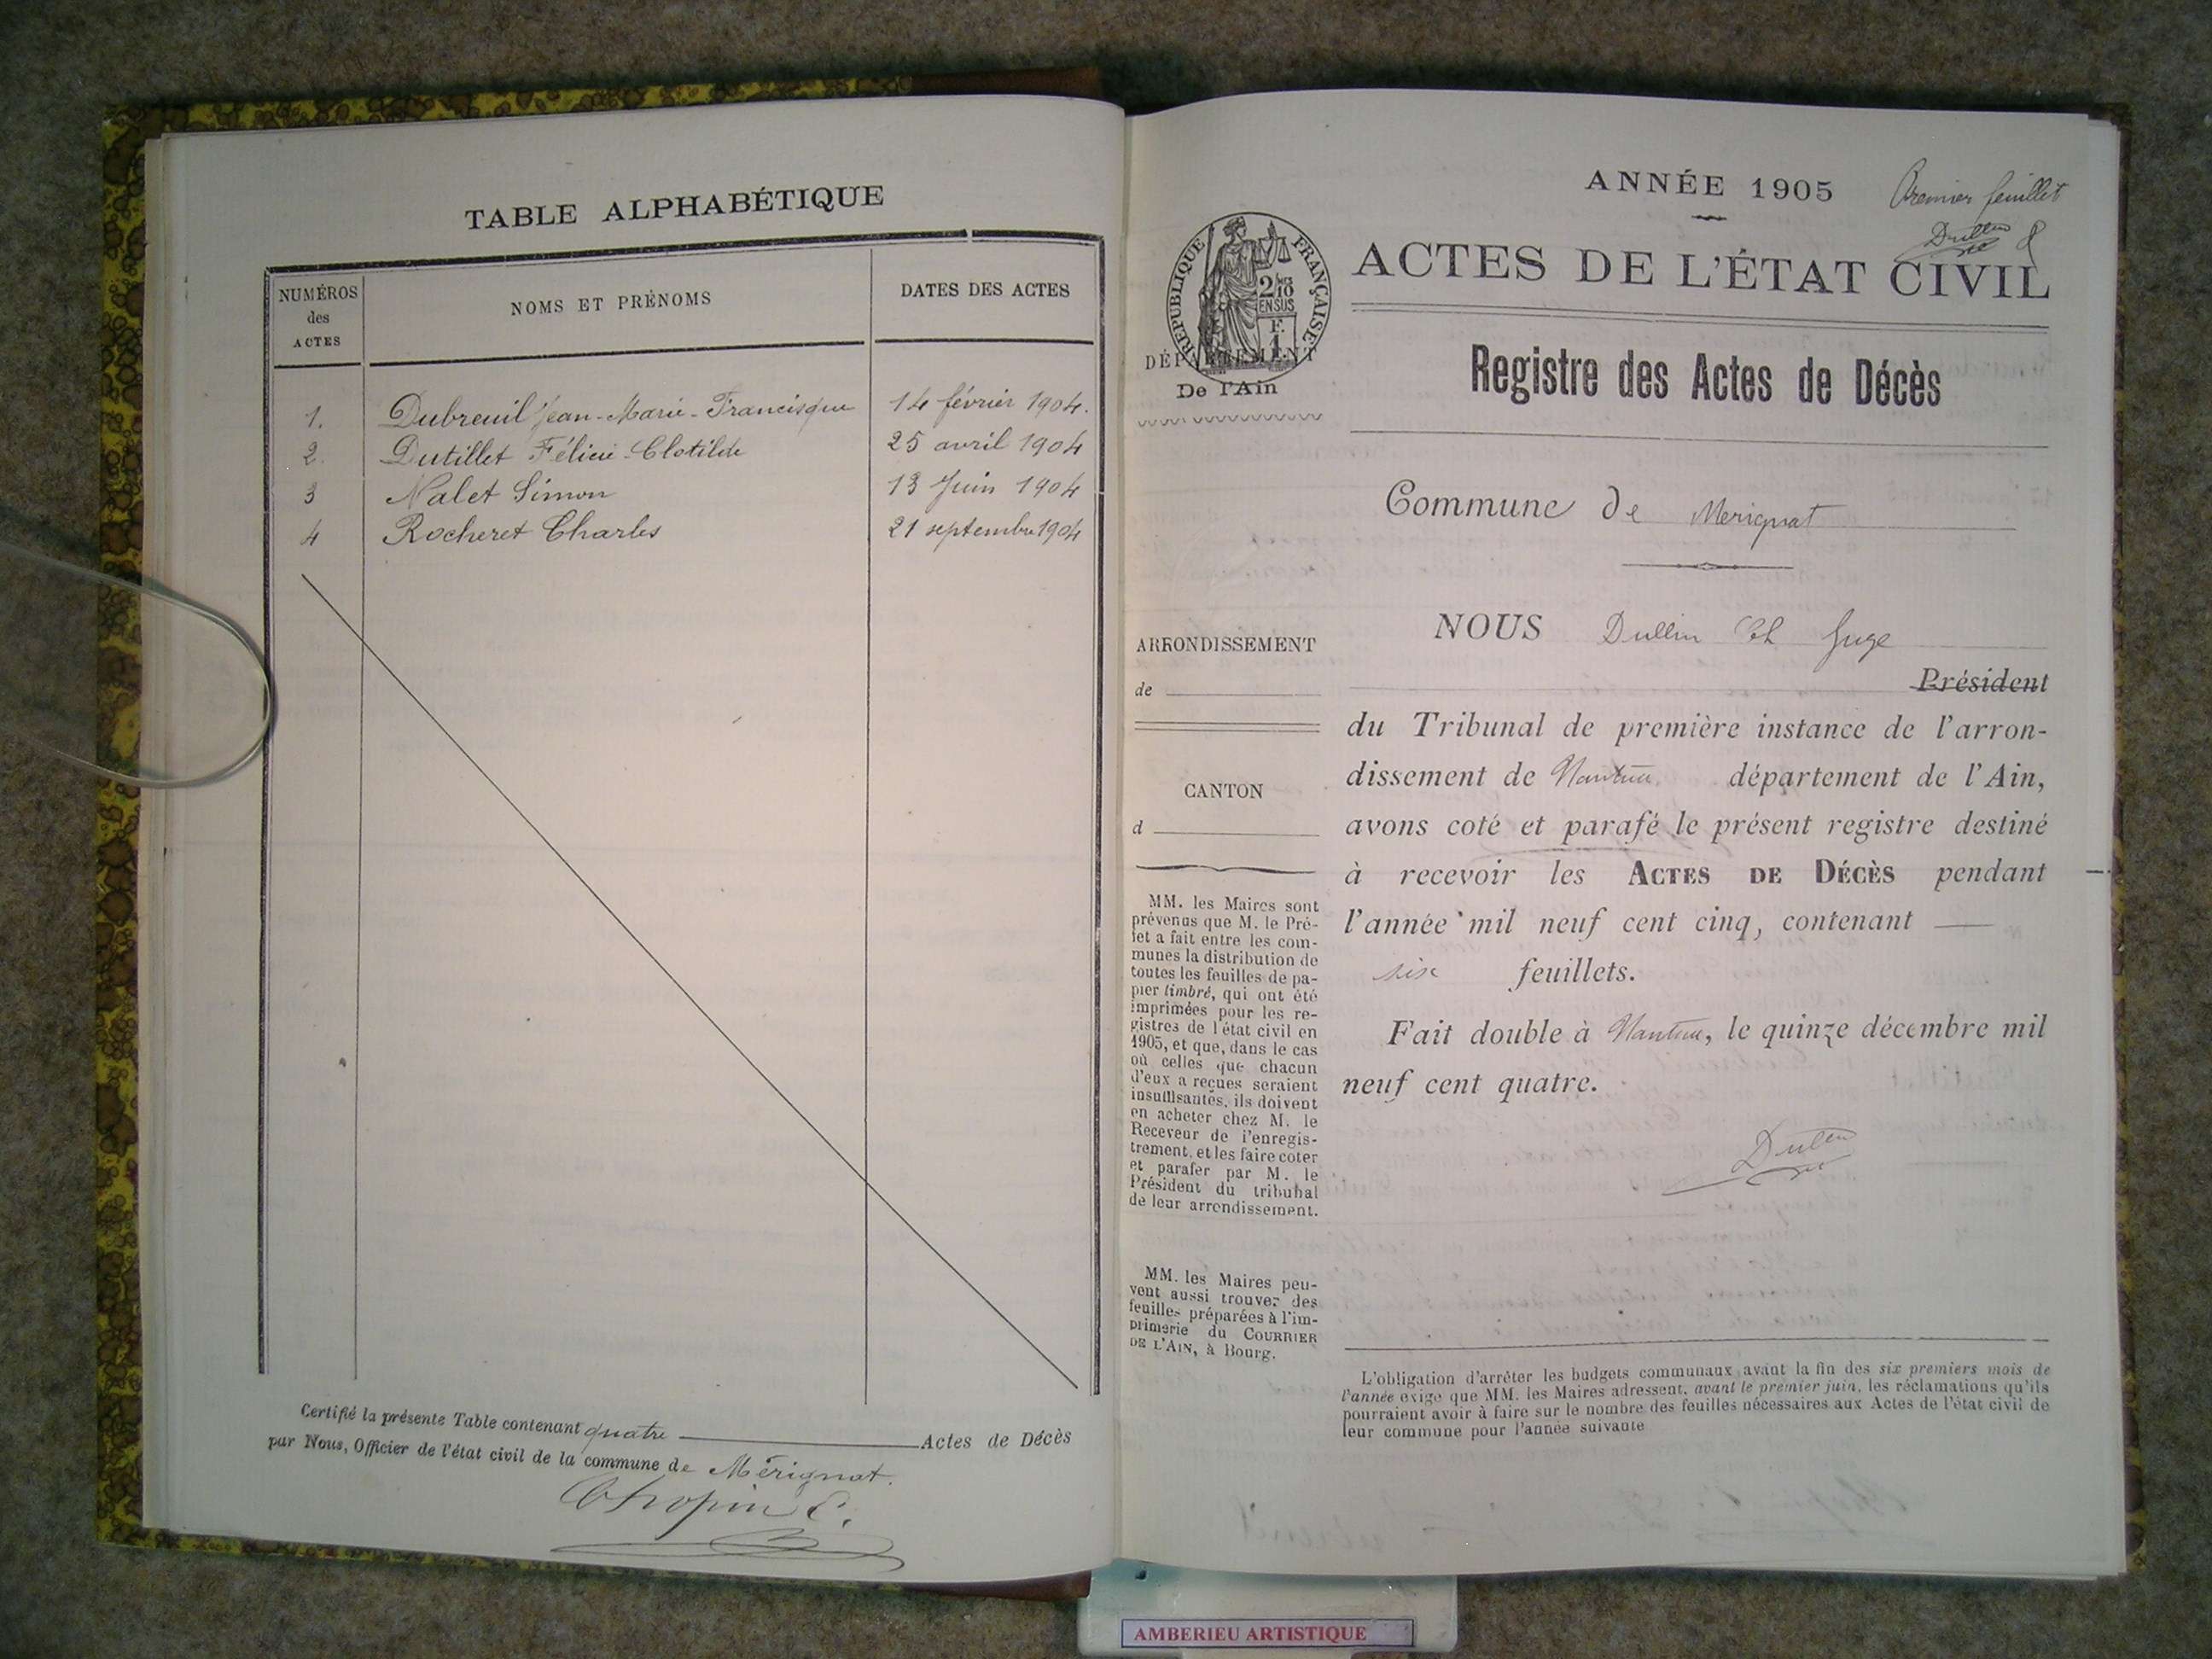 TABLE ALPHABÉTIQUE
NUMÉROS
des
ACTES
NOMS ET PRÉNOMS
DATES DES ACTES
1. Dubreuil Jean-Marie-Francisque 14 février 1904.
2. Dutillet Félicie-Clotilde 25 avril 1904
3 Nalet Simon 13 Juin 1904
4 Rocheret Charles 21 septembre 1904
Certifié la présente Table contenant quatre Actes de Décès
par Nous, Officier de l'état civil de la commune de Mérignat.
Chopin C.
ANNÉE 1905
Premier feuillet
Dullin
ACTES DE L'ÉTAT CIVIL
RÉPUBLIQUE FRANÇAISE
2/10
EN SUS
F.
1.
DÉPARTEMENT
De l'Ain
Registre des Actes de Décès
Commune de Merignat
ARRONDISSEMENT
de
CANTON
d
MM. les Maires sont
prévenus que M. le Pré-
fet a fait entre les com-
munes la distribution de
toutes les feuilles de pa-
pier timbré, qui ont été
imprimées pour les re-
gistres de l'état civil en
1905, et que, dans le cas
où celles que chacun
d'eux a reçues seraient
insuffisantes, ils doivent
en acheter chez M. le
Receveur de l'enregis-
trement, et les faire coter
et parafer par M. le
Président du tribunal
de leur arrondissement.
MM. les Maires peu-
vent aussi trouver des
feuilles préparées à l'im-
primerie du COURRIER
DE L'AIN, à Bourg.
NOUS Dullin Ch Juge
Président
du Tribunal de première instance de l'arron-
dissement de Nantua département de l'Ain,
avons coté et parafé le présent registre destiné
à recevoir les ACTES DE DÉCÈS pendant
l'année mil neuf cent cinq, contenant —
six feuillets.
Fait double à Nantua, le quinze décembre mil
neuf cent quatre.
Dullin
L'obligation d'arrêter les budgets communaux avant la fin des six premiers mois de
l'année exige que MM. les Maires adressent, avant le premier juin, les réclamations qu'ils
pourraient avoir à faire sur le nombre des feuilles nécessaires aux Actes de l'état civil de
leur commune pour l'année suivante
AMBERIEU ARTISTIQUE